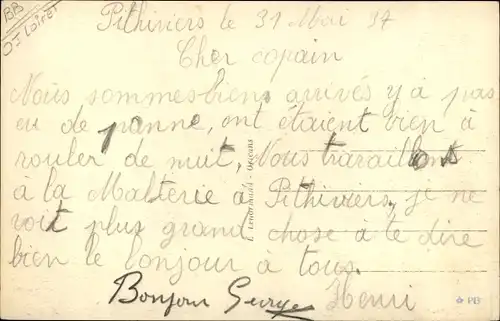 BB
Dt Loiret
Pithiviers le 31 Mai 37
Cher copain
Nous sommes biens arrivés y a pas
eu de panne, ont étaient bien à
rouler de nuit, Nous travaillons
à la Malterie à Pithiviers, je ne
voit plus grand chose à te dire
bien le bonjour à tous.
Bonjour Henri
PB